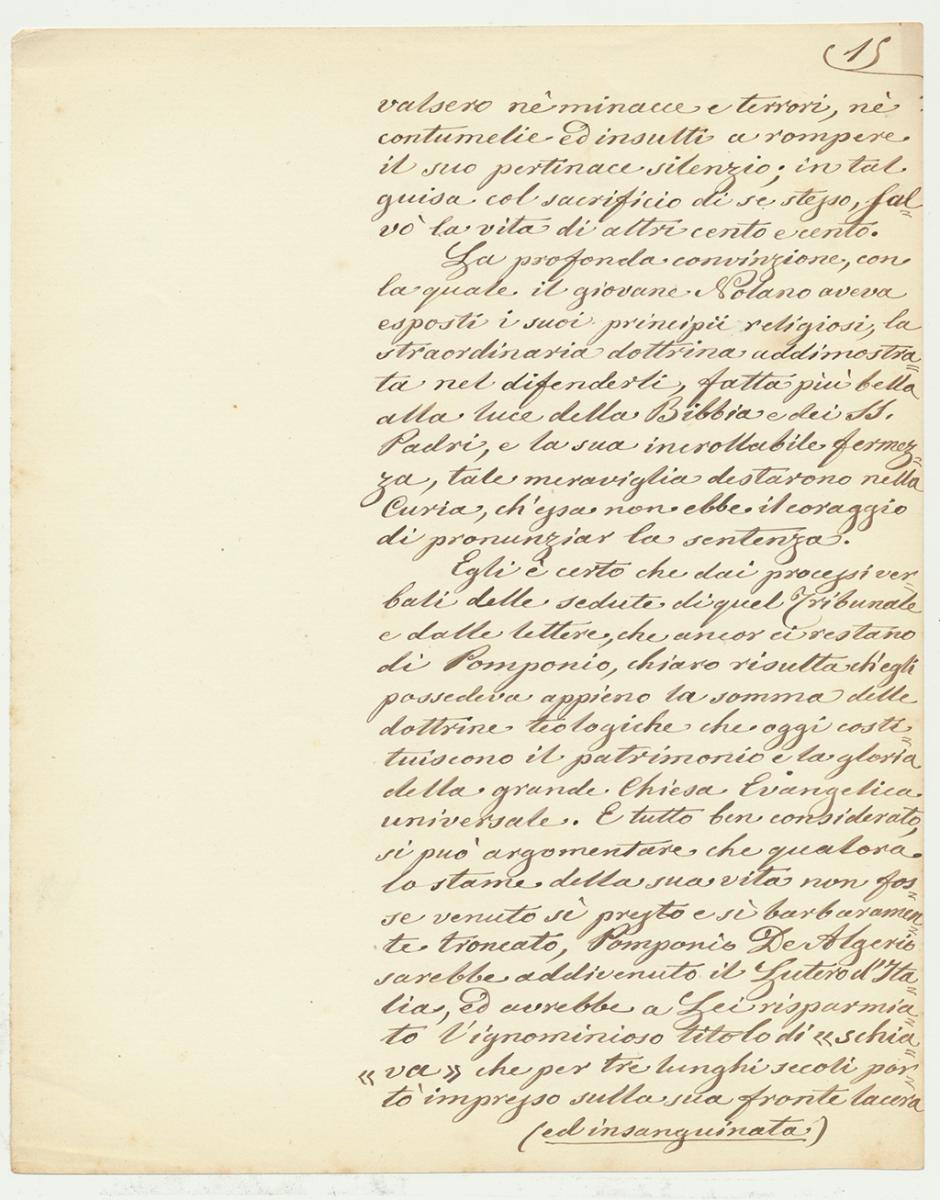 15
valsero nè minacce e terrori, nè
contumelie ed insulti a rompere
il suo pertinace silenzio; in tal
guisa col sacrificio di se stesso, sal=
vò la vita di altri cento e cento.
La profonda convinzione, con
la quale il giovane Nolano aveva
esposti i suoi principii religiosi, la
straordinaria dottrina addimostra=
ta nel difenderli, fatta più bella
alla luce della Bibbia e dei SS.
Padri, e la sua incrollabile fermez=
za, tale meraviglia destarono nella
Curia, ch'essa non ebbe il coraggio
di pronunziar la sentenza.
Egli è certo che dai processi ver=
bali delle sedute di quel Tribunale
e dalle lettere, che ancor ci restano
di Pomponio, chiaro risulta ch'egli
possedeva appieno la somma delle
dottrine teologiche che oggi costi=
tuiscono il patrimonio e la gloria
della grande Chiesa Evangelica
universale. E tutto ben considerato,
si può argomentare che qualora
lo stame della sua vita non fos=
se venuto sì presto e sì barbaramen=
te troncato, Pomponio De Algerio
sarebbe addivenuto il Lutero d'Ita=
lia, ed avrebbe a Lei risparmia=
to l'ignominioso titolo di «schia=
«va» che per tre lunghi secoli por=
tò impresso sulla sua fronte lacera
(ed insanguinata)